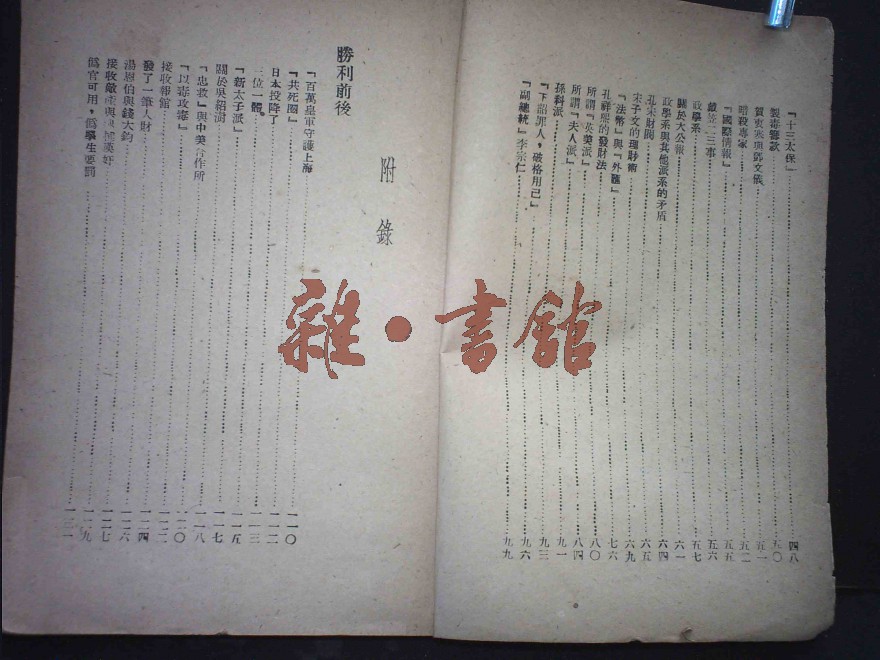 「十三太保」 四八
製毒籌款 五〇
賀衷寒與鄧文儀 五一
暗殺專家 五二
「國際情報」 五五
戴笠二三事 五六
政學系 五七
關於大公報 六一
政學系與其他派系的矛盾 六四
孔宋財閥 六五
宋子文的理財術 六九
「法幣」與「外匯」 七六
孔祥熙的發財法 八〇
所謂「英美派」 八四
所謂「夫人派」 九一
孫科派 九三
「下詔罪人，破格用己」 九六
「副總統」李宗仁 九九
附錄
勝利前後
「百萬皇軍守護上海」 一一〇
「共死圈」 一一二
日本投降了 一一三
三位一體。 一一五
「新太子派」 一一七
關於吳紹澍 一一八
「忠救」與中美合作所 一二〇
「以毒攻毒」 一二二
接收報館 一二四
發了一筆人財 一二六
湯恩伯與錢大鈞 一二七
接收敵產與漢奸 一二九
爲官可用，爲學生要罰 一三一
雜·書館